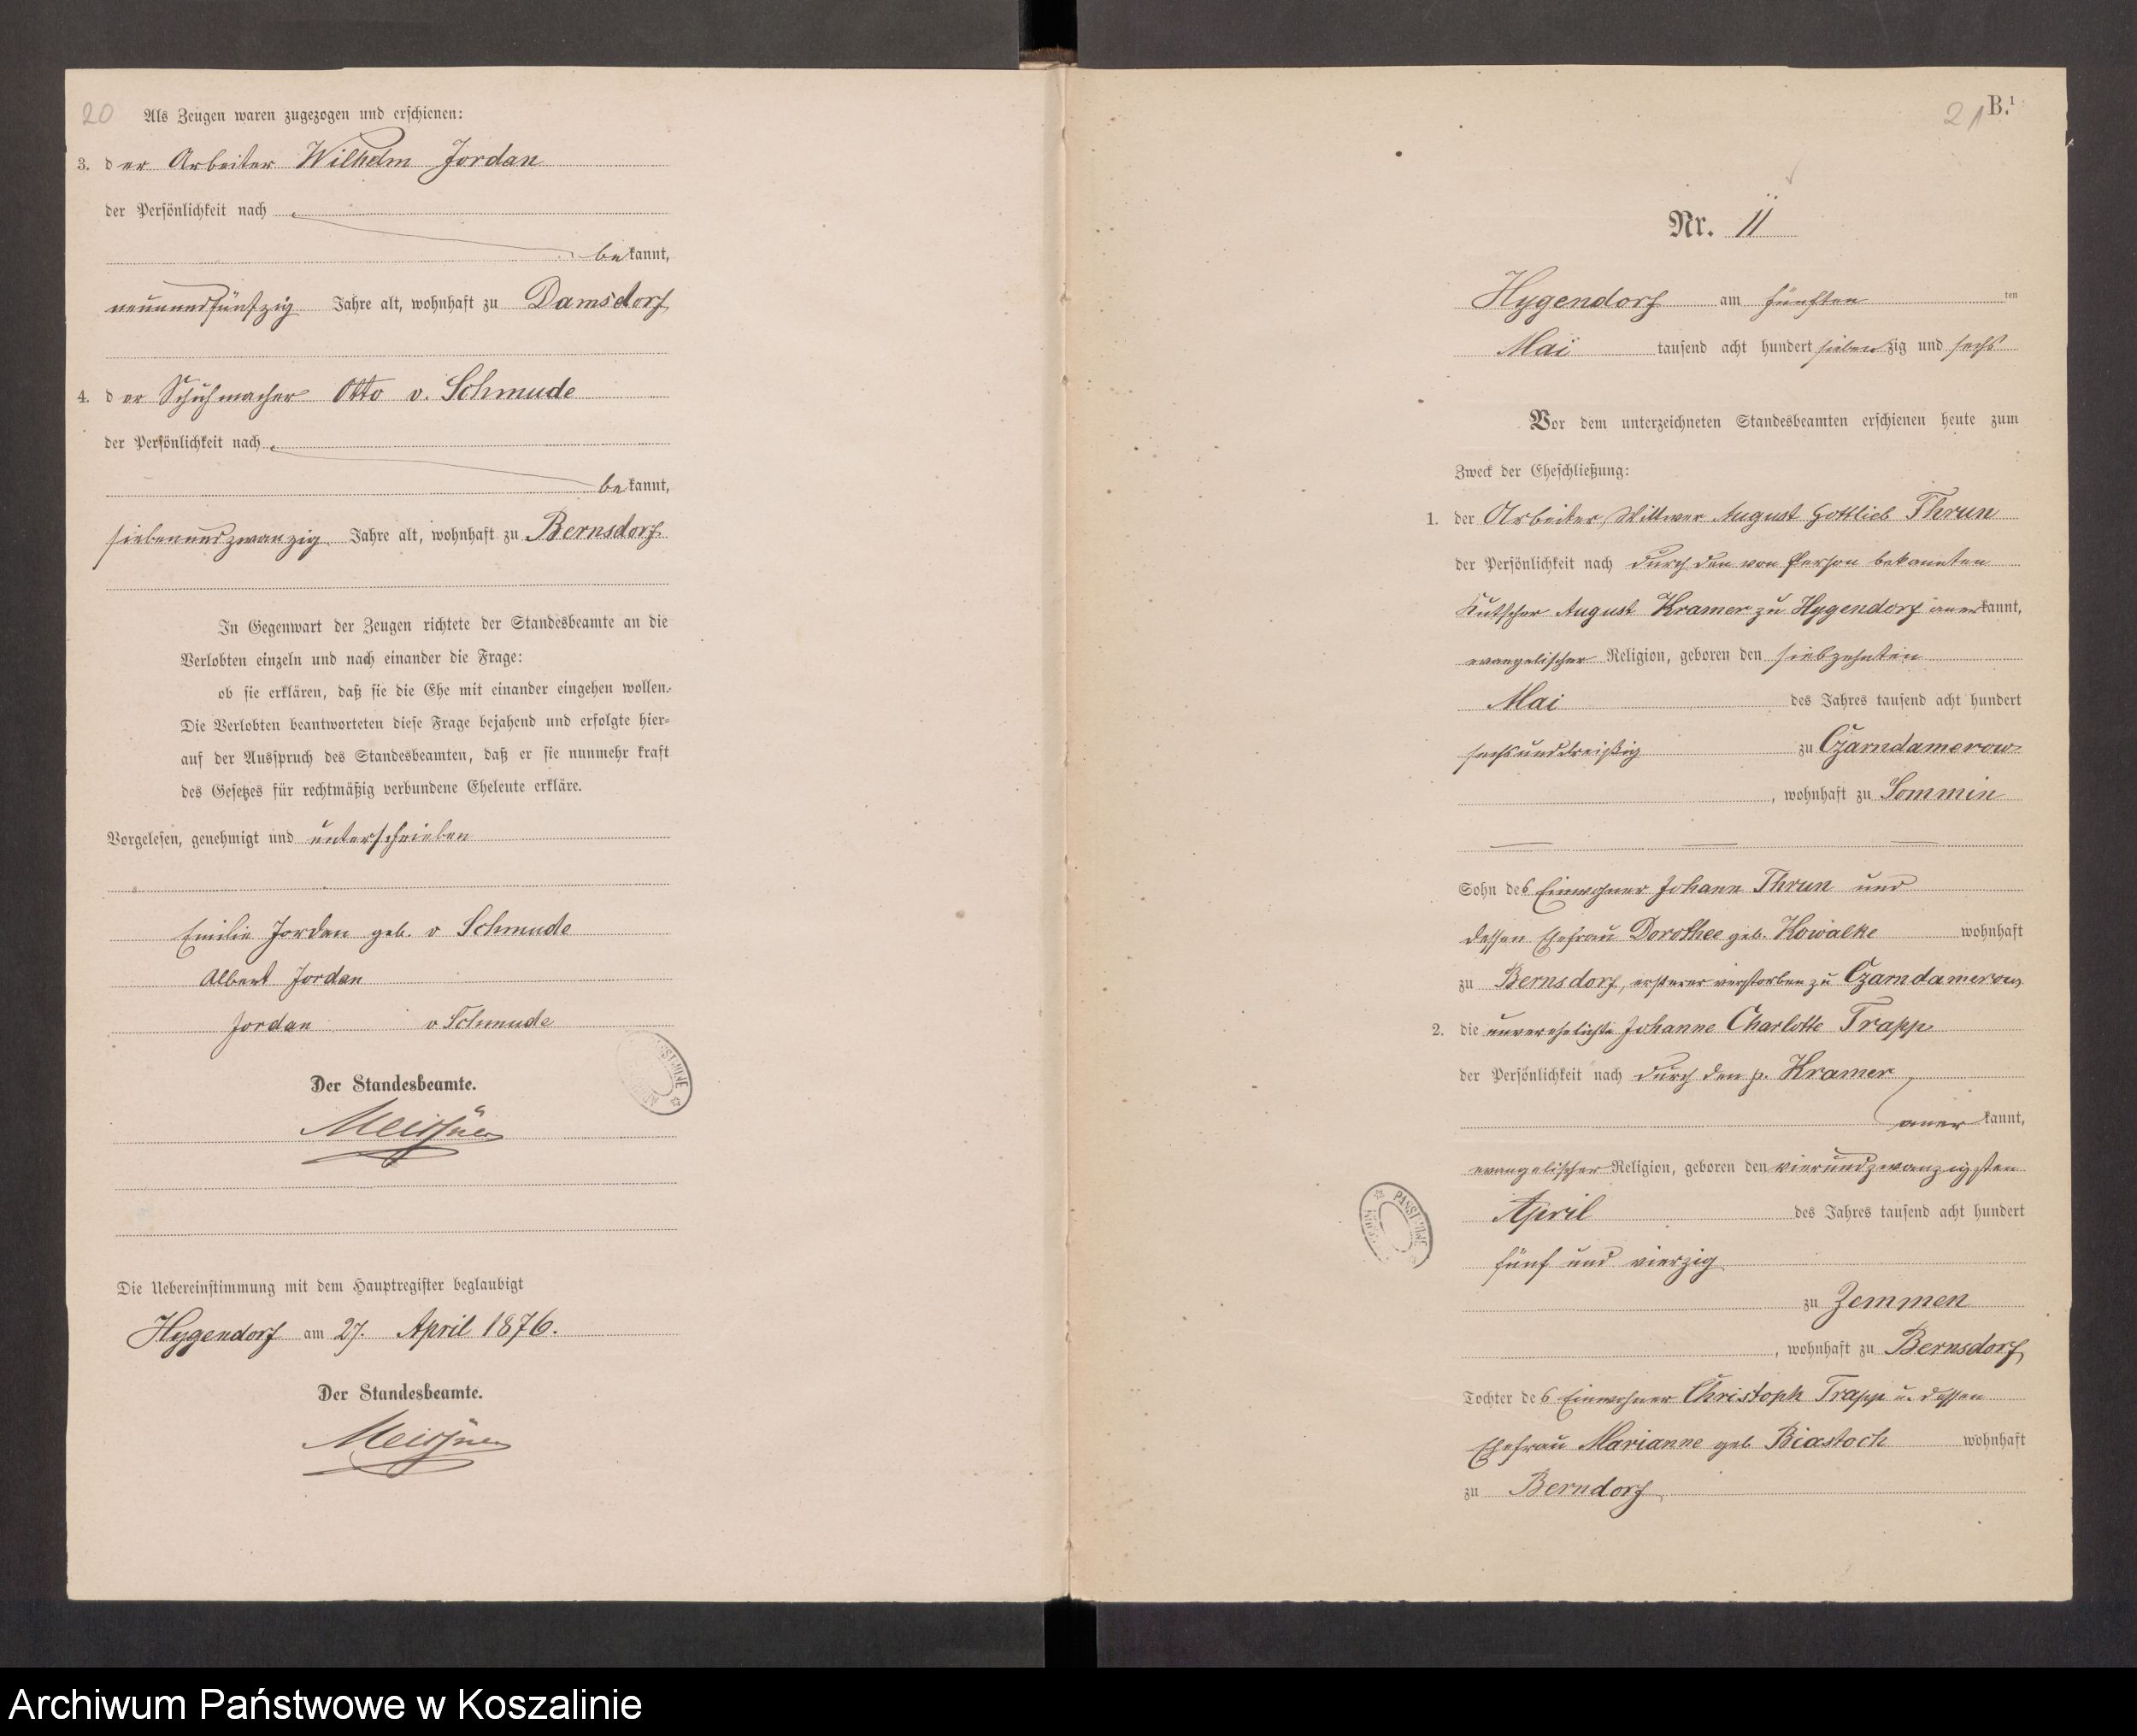 20
Als Zeugen waren zugezogen und erschienen:
3. der Arbeiter Wilhelm Jordan
der Persönlichkeit nach
bekannt,
neunundfünfzig Jahre alt, wohnhaft zu Damsdorf
4. der Schuhmacher Otto v. Schmude
der Persönlichkeit nach
bekannt,
siebenundzwanzig Jahre alt, wohnhaft zu Bernsdorf
In Gegenwart der Zeugen richtete der Standesbeamte an die
Verlobten einzeln und nach einander die Frage:
ob sie erklären, daß sie die Ehe mit einander eingehen wollen.
Die Verlobten beantworteten diese Frage bejahend und erfolgte hier=
auf der Ausspruch des Standesbeamten, daß er sie nunmehr kraft
des Gesetzes für rechtmäßig verbundene Eheleute erkläre.
Vorgelesen, genehmigt und unterschrieben
Emilie Jordan geb. v Schmude
Albert Jordan
Jordan v Schmude
Der Standesbeamte.
Meissner
Die Uebereinstimmung mit dem Hauptregister beglaubigt
Hygendorf am 27. April 1876.
Der Standesbeamte.
Meissner
21 B.¹
Nr. 11
Hygendorf am fünften ten
Mai tausend acht hundert siebenzig und sechs
Vor dem unterzeichneten Standesbeamten erschienen heute zum
Zweck der Eheschließung:
1. der Arbeiter, Wittwer August Gottlieb Thrun
der Persönlichkeit nach durch den von Person bekannten
Kutscher August Kramer zu Hygendorf anerkannt,
evangelischer Religion, geboren den siebzehnten
Mai des Jahres tausend acht hundert
sechsunddreißig zu Czarndamerow
, wohnhaft zu Sommin
Sohn des Einwohner Johann Thrun und
dessen Ehefrau Dorothee geb. Kowalke wohnhaft
zu Bernsdorf, ersterer verstorben zu Czarndamerow
2. die unverehelichte Johanne Charlotte Trapp
der Persönlichkeit nach durch den p. Kramer
anerkannt,
evangelischer Religion, geboren den vierundzwanzigsten
April des Jahres tausend acht hundert
fünf und vierzig
zu Zemmen
, wohnhaft zu Bernsdorf
Tochter des Einwohner Christoph Trapp u. dessen
Ehefrau Marianne geb. Biastoch wohnhaft
zu Berndorf
Archiwum Państwowe w Koszalinie